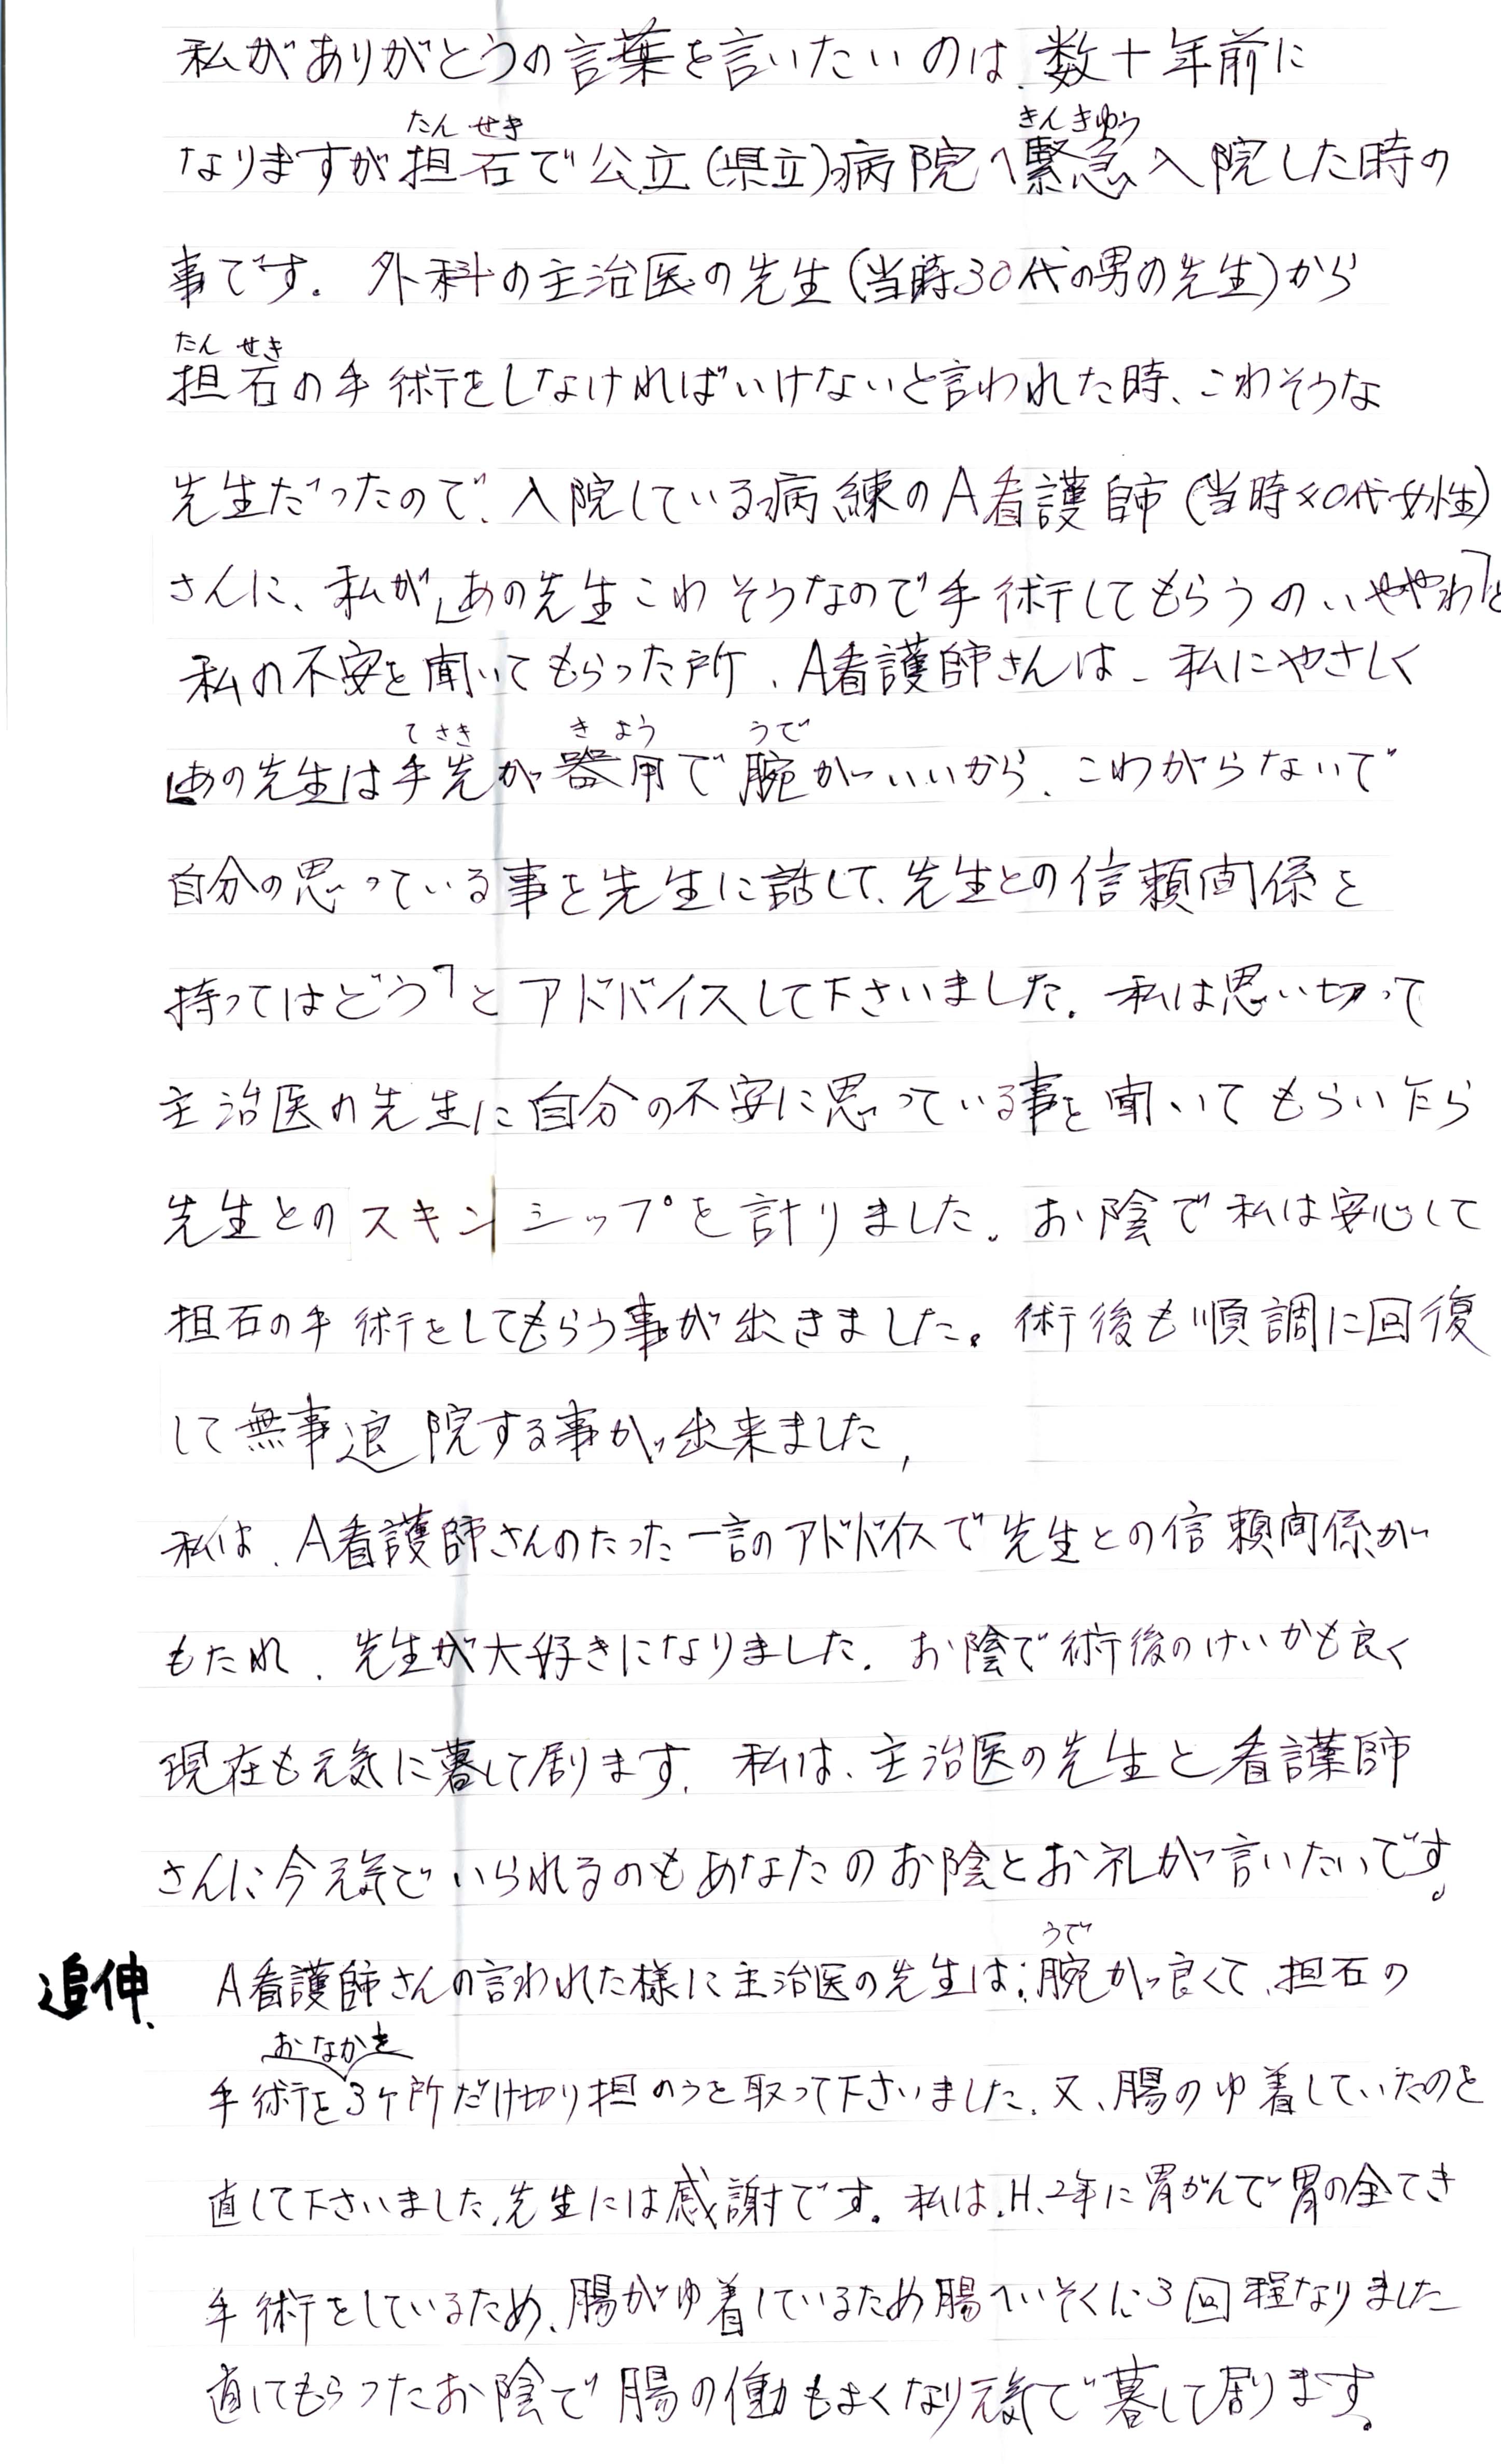 私がありがとうの言葉を言いたいのは、数十年前に
たんせき きんきゅう
なりますが担石で公立(県立)病院へ緊急入院した時の
事です。外科の主治医の先生(当時30代の男の先生)から
たんせき
担石の手術をしなければいけないと言われた時、こわそうな
先生だったので、入院している病練のA看護師(当時40代女性)
さんに、私が「あの先生こわそうなので手術してもらうのいややわ」と
私の不安を聞いてもらった所、A看護師さんは、私にやさしく
てさき きよう うで
「あの先生は手先が器用で腕がいいから、こわがらないで
自分の思っている事を先生に話して、先生との信頼関係を
持ってはどう」とアドバイスして下さいました。私は思い切って
主治医の先生に自分の不安に思っている事を聞いてもらいたら
先生とのスキンシップを計りました。お陰で私は安心して
担石の手術をしてもらう事が出きました。術後も順調に回復
して無事退院する事が出来ました、
私は、A看護師さんのたった一言のアドバイスで先生との信頼関係が
もたれ、先生が大好きになりました。お陰で術後のけいかも良く
現在も元気に暮して居ります。私は、主治医の先生と看護師
さんに今元気でいられるのもあなたのお陰とお礼が言いたいです。
うで
追伸、A看護師さんの言われた様に主治医の先生は、腕が良くて、担石の
おなかを
手術を3ヶ所だけ切り担のうを取って下さいました。又、腸のゆ着していたのを
直して下さいました、先生には感謝です。私は、H、2年に胃がんで胃の全てき
手術をしているため、腸がゆ着しているため腸へいそくに3回程なりました
直してもらったお陰で腸の働もよくなり元気で暮して居ります。